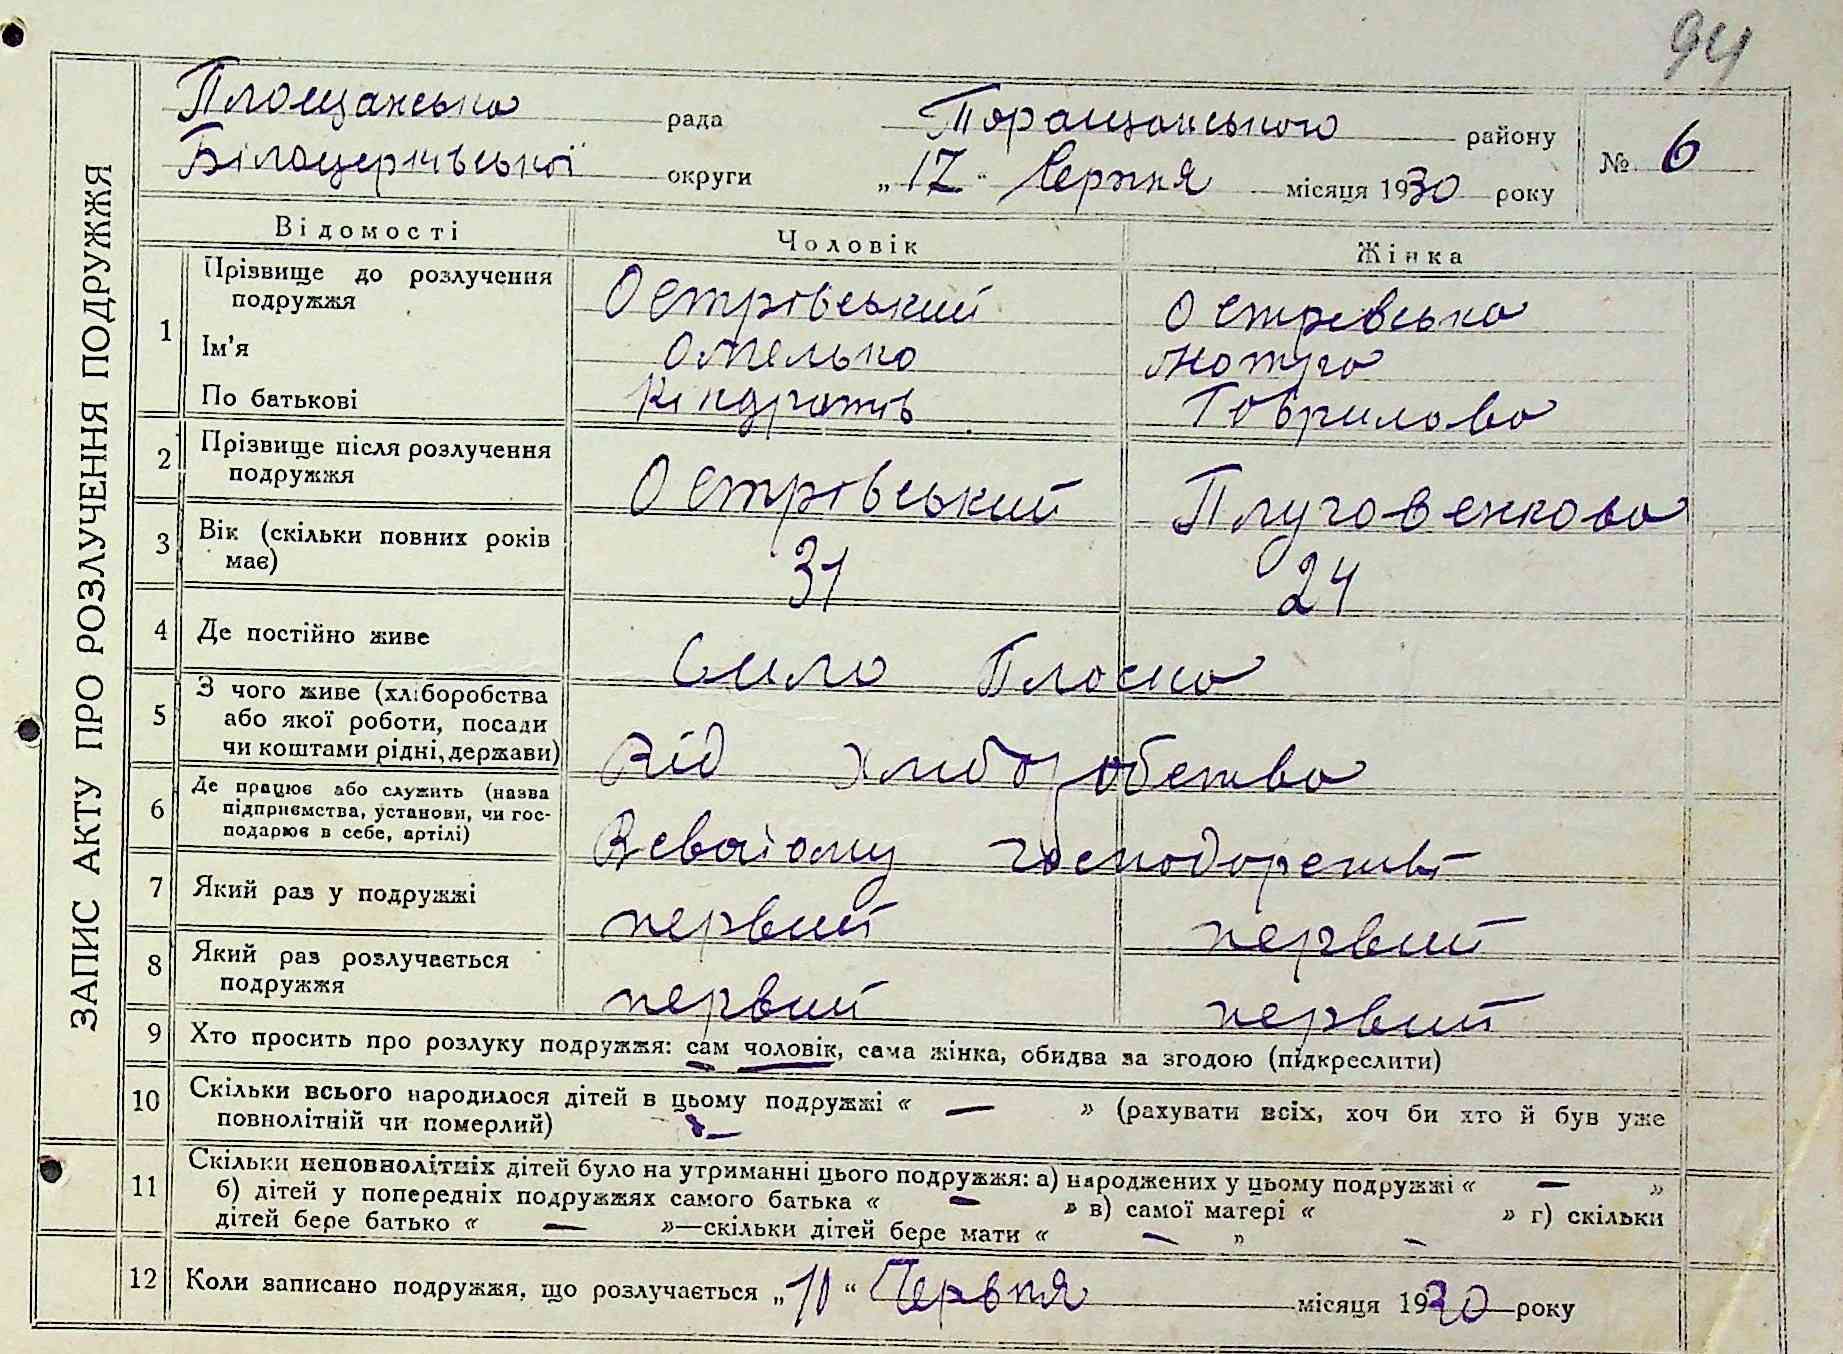 94
ЗАПИС АКТУ ПРО РОЗЛУЧЕННЯ ПОДРУЖЖЯ
Площанська рада Таращанського району № 6
Білоцерківської округи „17“ Серпня місяця 1930 року
Відомості Чоловік Жінка
1 Прізвище до розлучення подружжя Острівський Острівська
Ім'я Омелько Мотря
По батькові Кіндратів Гаврилова
2 Прізвище після розлучення подружжя Острівський Плуговенкова
3 Вік (скільки повних років має) 31 24
4 Де постійно живе Село Плоска
5 З чого живе (хліборобства або якої роботи, посади чи коштами рідні, держави) Від хліборобства
6 Де працює або служить (назва підприємства, установи, чи господарює в себе, артілі) Всвоіому господарстві
7 Який раз у подружжі первий первий
8 Який раз розлучається подружжя первий первий
9 Хто просить про розлуку подружжя: сам чоловік, сама жінка, обидва за згодою (підкреслити)
10 Скільки всього народилося дітей в цьому подружжі « — » (рахувати всіх, хоч би хто й був уже
повнолітній чи померлий)
11 Скільки неповнолітніх дітей було на утриманні цього подружжя: а) народжених у цьому подружжі « — »
б) дітей у попередніх подружжях самого батька « — » в) самої матері « » г) скільки
дітей бере батько « — »—скільки дітей бере мати « — » —
12 Коли записано подружжя, що розлучається „11“ Червня місяця 1930 року